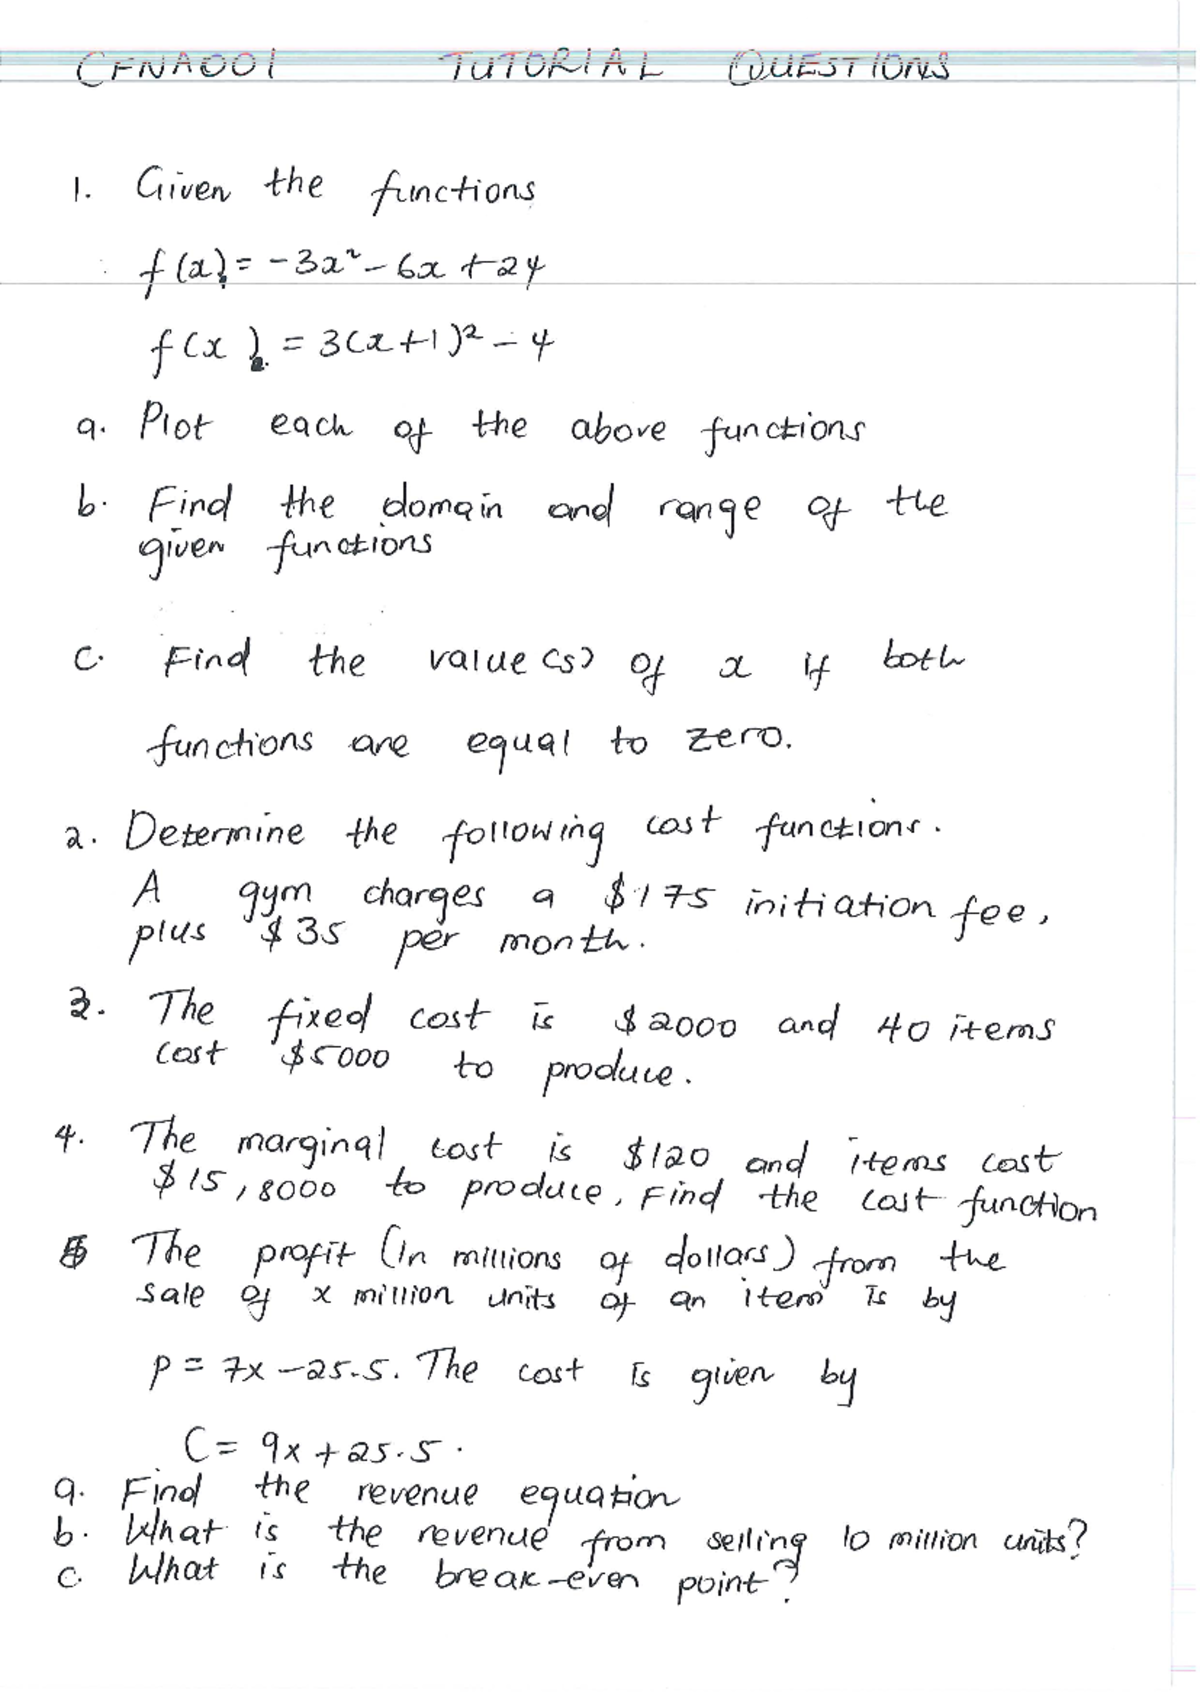 CFNA001 TUTORIAL QUESTIONS
1. Given the functions
f(x)₁ = -3x² - 6x + 24
f(x)₂ = 3(x+1)² - 4
a. Plot each of the above functions
b. Find the domain and range of the
given functions
c. Find the value(s) of x if both
functions are equal to zero.
2. Determine the following cost functions.
A gym charges a $175 initiation fee,
plus $35 per month.
3. The fixed cost is $2000 and 40 items
cost $5000 to produce.
4. The marginal cost is $120 and items cost
$15,8000 to produce, Find the cost function
5 The profit (in millions of dollars) from the
sale of x million units of an item is by
p = 7x - 25.5. The cost is given by
C = 9x + 25.5.
a. Find the revenue equation
b. What is the revenue from selling 10 million units?
c. What is the break-even point?